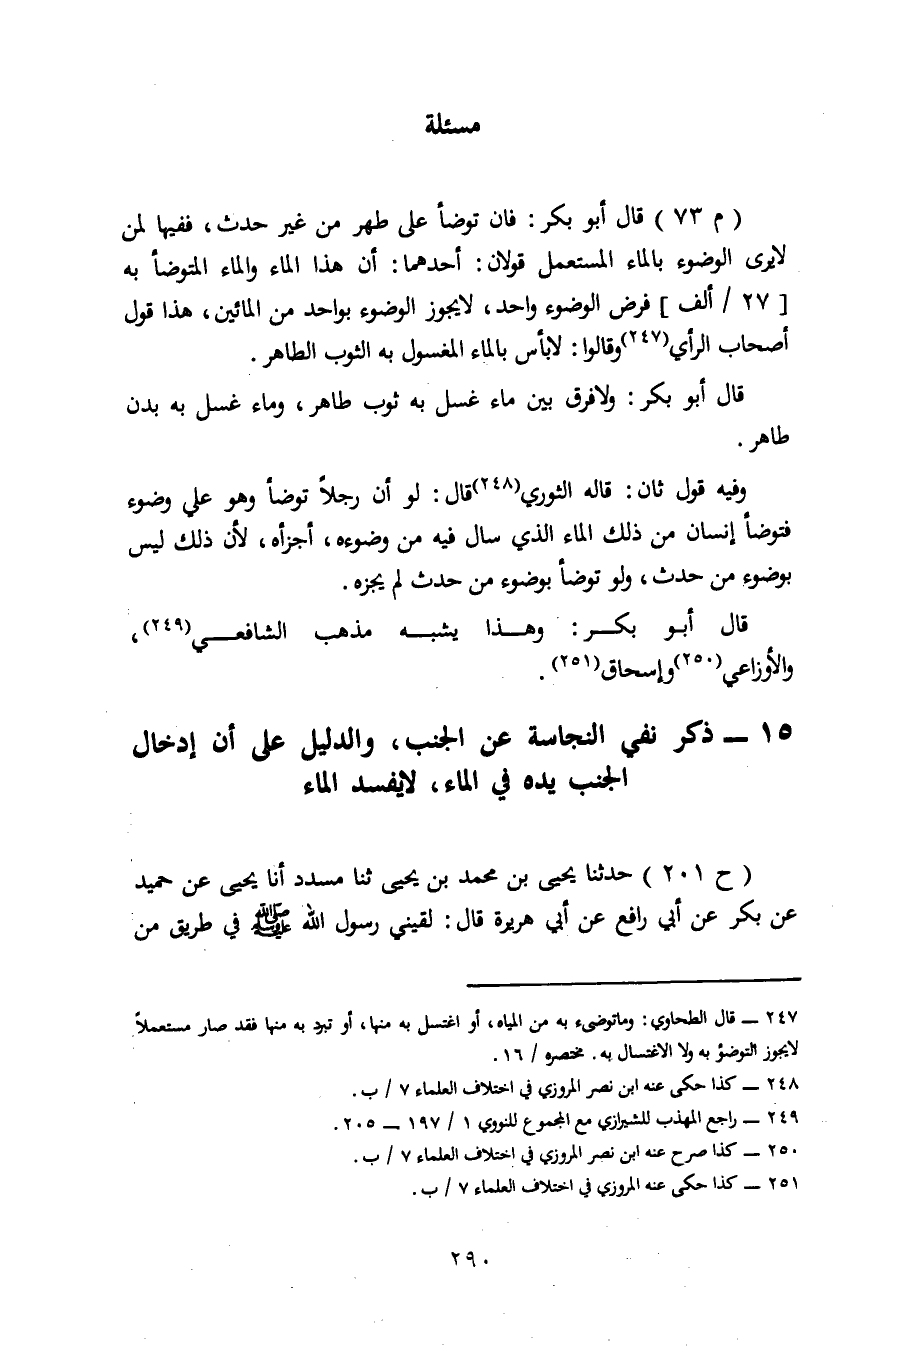 مسئلة
( م ٧٣ ) قال أبو بكر : فان توضأ على طهر من غير حدث ، ففيها لمن
لايرى الوضوء بالماء المستعمل قولان : أحدهما : أن هذا الماء والماء المتوضأ به
[ ٢٧ / ألف ] فرض الوضوء واحد ، لايجوز الوضوء بواحد من المائين ، هذا قول
أصحاب الرأي(٢٤٧)وقالوا : لابأس بالماء المغسول به الثوب الطاهر .
قال أبو بكر : ولافرق بين ماء غسل به ثوب طاهر ، وماء غسل به بدن
طاهر .
وفيه قول ثان : قاله الثوري(٢٤٨)قال : لو أن رجلاً توضأ وهو علي وضوء
فتوضأ إنسان من ذلك الماء الذي سال فيه من وضوءه ، أجزأه ، لأن ذلك ليس
بوضوء من حدث ، ولو توضأ بوضوء من حدث لم يجزه .
قال أبـو بكـــر : وهـــذا يشبـــه مذهب الشافعـــي(٢٤٩) ،
والأوزاعي(٢٥٠)وإسحاق(٢٥١) .
١٥ ـــ ذكر نفي النجاسة عن الجنب ، والدليل على أن إدخال
الجنب يده في الماء ، لايفسد الماء
( ح ٢٠١ ) حدثنا يحيى بن محمد بن يحيى ثنا مسدد أنا يحيى عن حميد
عن بكر عن أبي رافع عن أبي هريرة قال : لقيني رسول الله ﷺ في طريق من
٢٤٧ ــ قال الطحاوي : وماتوضىء به من المياه ، أو اغتسل به منها ، أو تبرد به منها فقد صار مستعملاً
لايجوز التوضؤ به ولا الاغتسال به . مختصره / ١٦ .
٢٤٨ ــ كذا حكى عنه ابن نصر المروزي في اختلاف العلماء ٧ / ب .
٢٤٩ ــ راجع المهذب للشيرازي مع المجموع للنووي ١ / ١٩٧ ــ ٢٠٥ .
٢٥٠ ــ كذا صرح عنه ابن نصر المروزي في اختلاف العلماء ٧ / ب .
٢٥١ ــ كذا حكى عنه المروزي في اختلاف العلماء ٧ / ب .
٢٩٠